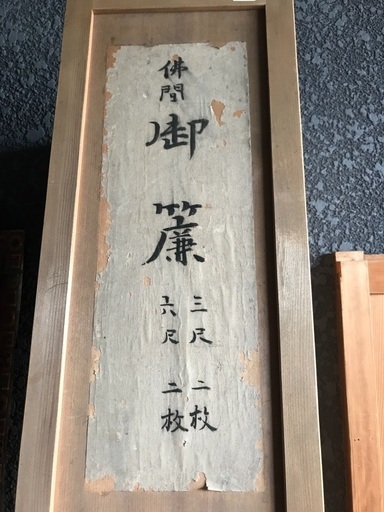 佛間
御簾
三尺 二枚
六尺 二枚